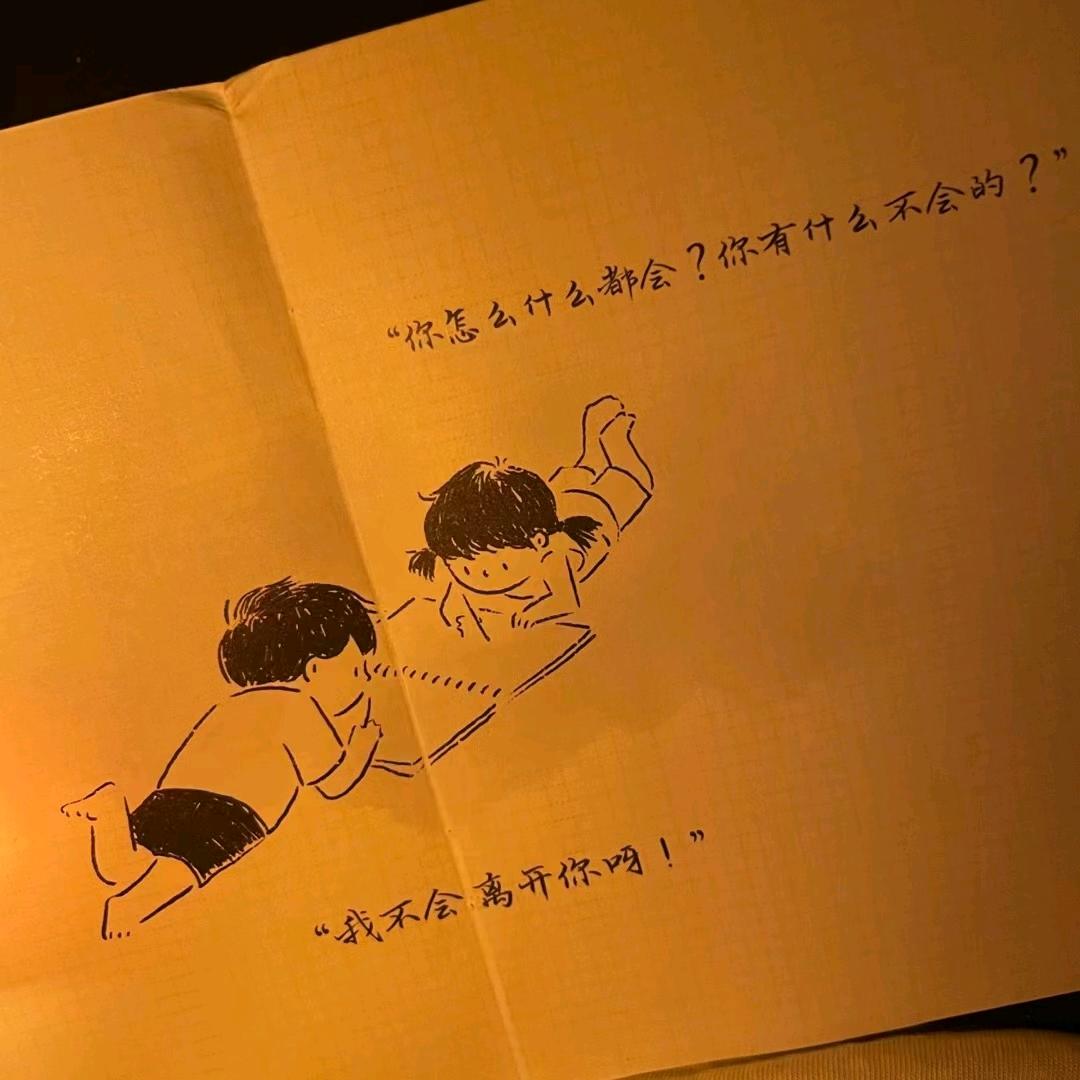 “你怎么什么都会？你有什么不会的？”
“我不会离开你呀！”